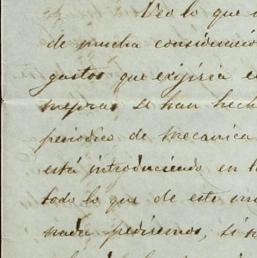 Veo lo que
de mucha consideració
gastos que exijiria e
mejoras se han hech
periodico de mecanica
está introduciendo en l
todo lo que de este m
nada pedirémos, si n